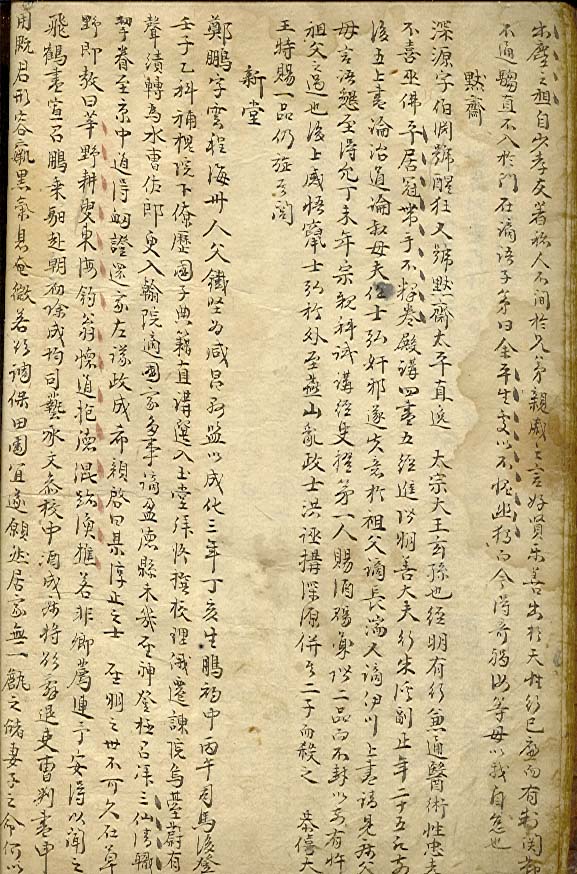 出塵之祖自少孝友著称人不間於兄弟親戚之言好賢樂善出於天性行己處而有 關節
不通驕直不入於門在謫語子弟曰余平生處心不愧幽獨而今得奇禍汝等毋以我自怠也
默齋
深源字伯淵號醒狂又號默齋太平直遜 太宗大王玄孫也經明有行兼通醫術性忠孝
不喜巫佛平居冠帶手不釋卷殿講四書五經進階明善大夫行朱溪副正年二十五 前
後五上書論治道論叔母夫任士弘奸邪遂失意於祖父謫長湍又謫伊川上書請見父
母言語懇至得允丁未年宗親科試講經史擢第一人賜酒賜樂階二品而不封以曾有忤
祖父之過也後上感悟竄士弘於外至燕山亂政士洪誣搆深源併其二子而殺之 恭僖大
王特賜一品仍旌其閭
新堂
鄭鵬字雲程海州人父鐵堅为咸昌縣監以成化三年丁亥生鵬初中丙午司馬後登
壬子乙科補槐院下僚歷國子典籍直講選入玉堂拜修撰校理俄遷諫院烏臺蔚有
聲績轉為水曹佐郎更入翰院適國家多事謫盈德縣未幾至神登極召拜三仙清職
挈眷至京中道得 證還家左議政成希顔啓曰某淳正之士 聖明之世不可久在草
野即教曰莘野耕叟東海釣翁懷道抱德混跡漁樵若非卿薦進予安得以聞之
飛鶴書宣召鵬乘馹赴朝面除成均司藝承文參校中酒成疾將欲露退吏曹判書申
用漑君形容羸黑氣息奄微若欲調保田園宜遂願然居家無一瓿之儲妻子之命何以